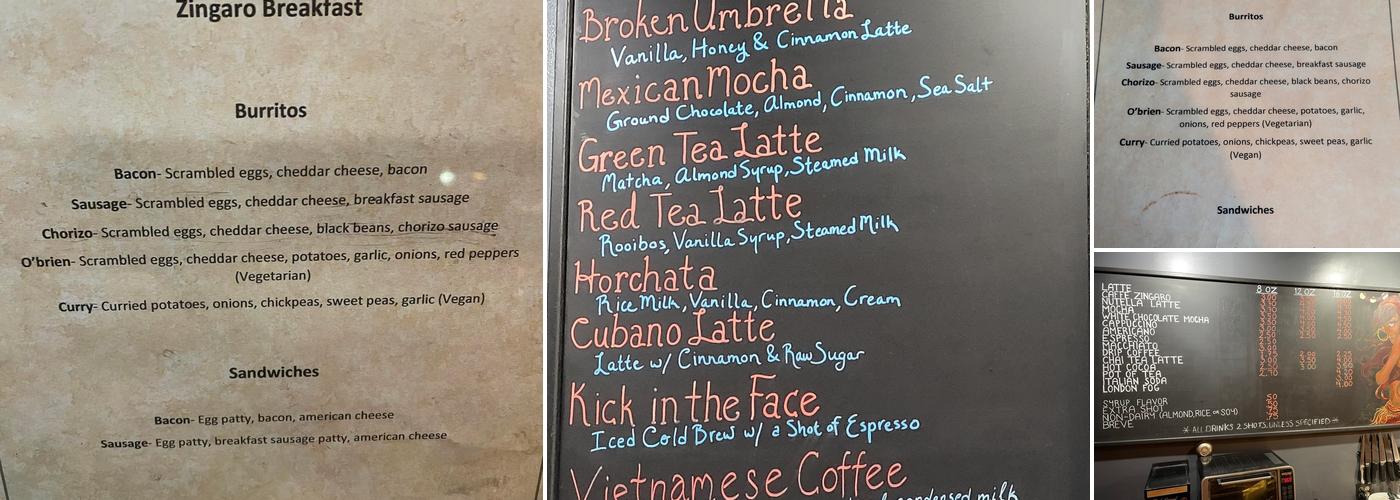 Zingaro Breakfast
Burritos
Bacon- Scrambled eggs, cheddar cheese, bacon
Sausage- Scrambled eggs, cheddar cheese, breakfast sausage
Chorizo- Scrambled eggs, cheddar cheese, black beans, chorizo sausage
O'brien- Scrambled eggs, cheddar cheese, potatoes, garlic, onions, red peppers
(Vegetarian)
Curry- Curried potatoes, onions, chickpeas, sweet peas, garlic (Vegan)
Sandwiches
Bacon- Egg patty, bacon, american cheese
Sausage- Egg patty, breakfast sausage patty, american cheese
Broken Umbrella
Vanilla, Honey & Cinnamon Latte
Mexican Mocha
Ground Chocolate, Almond, Cinnamon, Sea Salt
Green Tea Latte
Matcha, Almond Syrup, Steamed Milk
Red Tea Latte
Rooibos, Vanilla Syrup, Steamed Milk
Horchata
Rice Milk, Vanilla, Cinnamon, Cream
Cubano Latte
Latte w/ Cinnamon & Raw Sugar
Kick in the Face
Iced Cold Brew w/ a Shot of Espresso
Vietnamese Coffee
condensed milk
Burritos
Bacon- Scrambled eggs, cheddar cheese, bacon
Sausage- Scrambled eggs, cheddar cheese, breakfast sausage
Chorizo- Scrambled eggs, cheddar cheese, black beans, chorizo
sausage
O'brien- Scrambled eggs, cheddar cheese, potatoes, garlic,
onions, red peppers (Vegetarian)
Curry- Curried potatoes, onions, chickpeas, sweet peas, garlic
(Vegan)
Sandwiches
8 OZ 12 OZ 16 OZ
LATTE
CAFFE ZINGARO
NUTELLA LATTE
MOCHA
WHITE CHOCOLATE MOCHA
CAPPUCCINO
AMERICANO
ESPRESSO
MACCHIATO
DRIP COFFEE
CHAI TEA LATTE
HOT COCOA
POT OF TEA
ITALIAN SODA
LONDON FOG
SYRUP FLAVOR
EXTRA SHOT
NON-DAIRY (ALMOND, RICE OR SOY)
BREVE
* ALL DRINKS 2 SHOTS, UNLESS SPECIFIED *